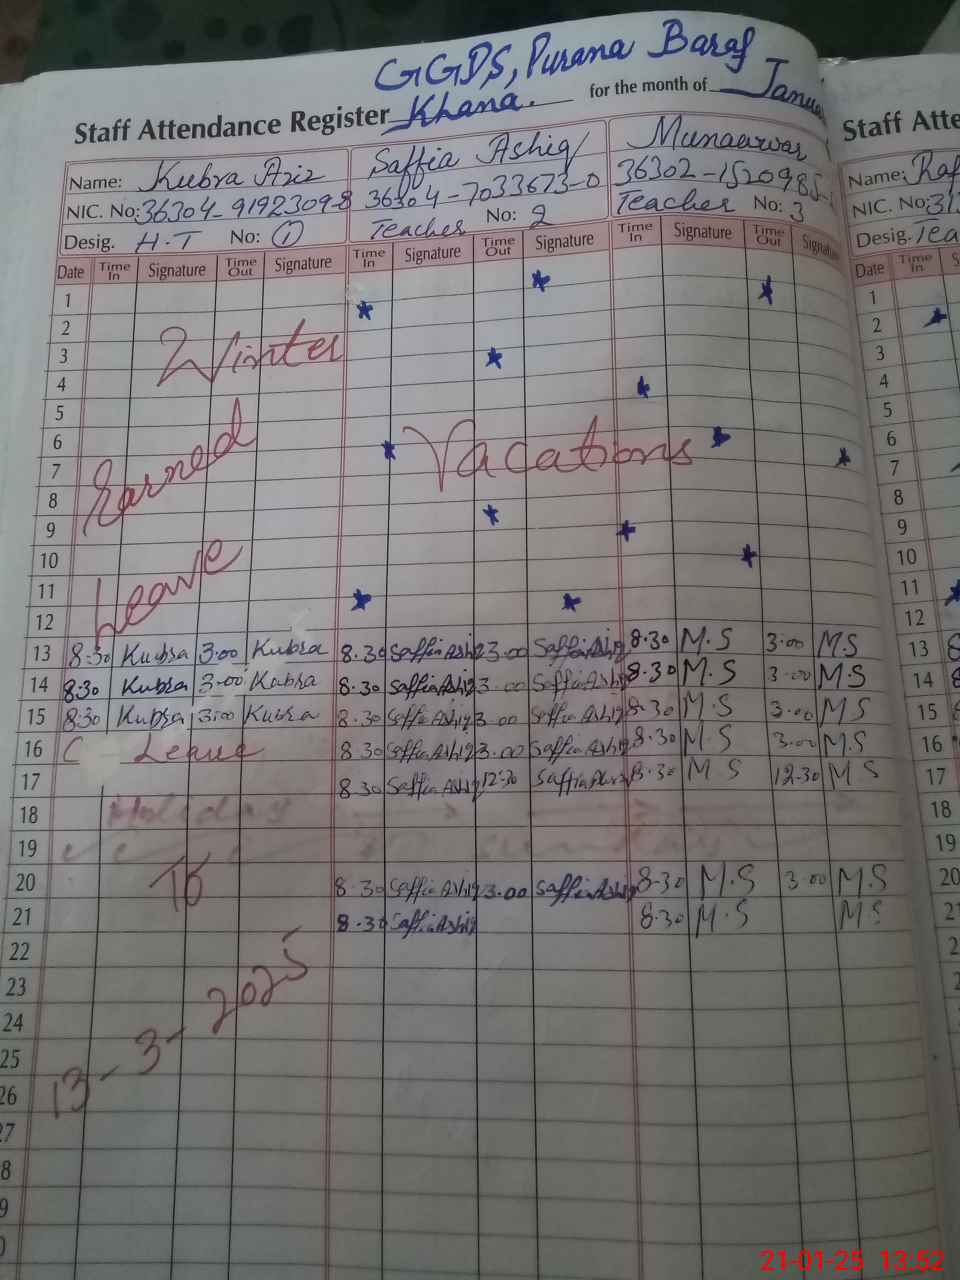 GGPS, Purana Baraf
Staff Attendance Register Khana. for the month of Janua
Name: Kubra Aziz Saffia Ashiq Munaawar
NIC. No: 36304-9192309-8 36304-7033673-0 36302-1520985-
Desig. H.T No: 1 Teacher No: 2 Teacher No: 3
Date Time In Signature Time Out Signature Time In Signature Time Out Signature Time In Signature Time Out Signatu
1
2
3 Winter
4
5
6 Earned Vacations
7
8
9
10
11 Leave
12
13 8:30 Kubra 3.00 Kubra 8.30 Saffia Ashiq 3.00 Saffia Ashiq 8.30 M.S 3.00 M.S
14 8:30 Kubra 3.00 Kubra 8.30 Saffia Ashiq 3.00 Saffia Ashiq 8.30 M.S 3.00 M.S
15 8:30 Kubra 3:00 Kubra 8.30 Saffia Ashiq 3.00 Saffia Ashiq 8.30 M S 3.00 M S
16 C Leave 8.30 Saffia Ashiq 3.00 Saffia Ashiq 8.30 M.S 3.00 M.S
17 8.30 Saffia Ashiq 12:30 Saffia 8.30 M S 12.30 M S
18 Holiday
19 sunday
20 To 8.30 Saffia Ashiq 3.00 Saffia Ashiq 8.30 M.S 3.00 M.S
21 8.30 Saffia Ashiq 8.30 M.S M.S
22
23
24
25
26
27
8
9
0
13-3-2025
Staff Atte
Name: Raf
NIC. No: 31
Desig. Tea
Date Time In S
1
2
3
4
5
6
7
8
9
10
11
12
13 8
14 8
15
16
17
18
19
20
21
2
2
21-01-25 13:52